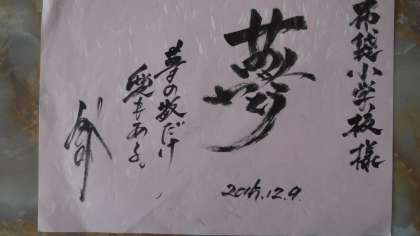 布袋小学校様
夢
夢の数だけ
愛もある。
2017.12.9